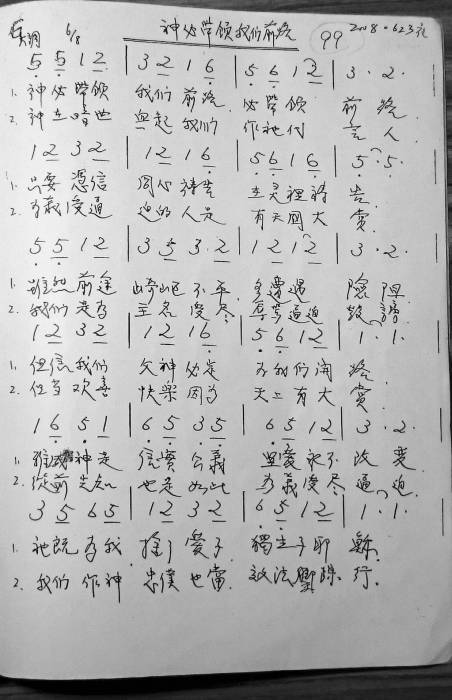 6/8 神必带领我们前路 99 2008.6.23
5 5 1 2 | 3 2 1 6 | 5 6 1 2 | 3 · 2 ·
1. 神必带领 我们前路 必带领 前路
2. 神在暗世 兴起我们 作祂付 言人
1 2 3 2 | 1 2 1 6 | 5 6 1 6 | 5 · 5 ·
1. 只要凭信 同心祷告 在灵裡祷 告
2. 为义受逼 迫的人是 有天国大 赏
5 5 1 2 | 3 5 3 2 | 1 2 1 2 | 3 · 2 ·
1. 前途 崎岖不平 多遭遇 险阻
2. 我们是为 主名受尽 逼迫
1 2 3 2 | 1 2 1 6 | 5 6 1 2 | 1 · 1 ·
1. 但信我们 父神必定 为我们开 路
2. 但当欢喜 快樂因为 天上有大 赏
1 6 5 1 | 6 5 3 5 | 6 5 1 2 | 3 · 2 ·
1. 神是 信實公義 慈爱永不 改变
2. 从前先知 也是如此 为義受尽 逼迫
3 5 6 5 | 1 2 3 2 | 6 5 1 2 | 1 · 1 ·
1. 祂既为我 捨了爱子 獨生子耶 稣
2. 我们作神 忠僕也當 效法 行